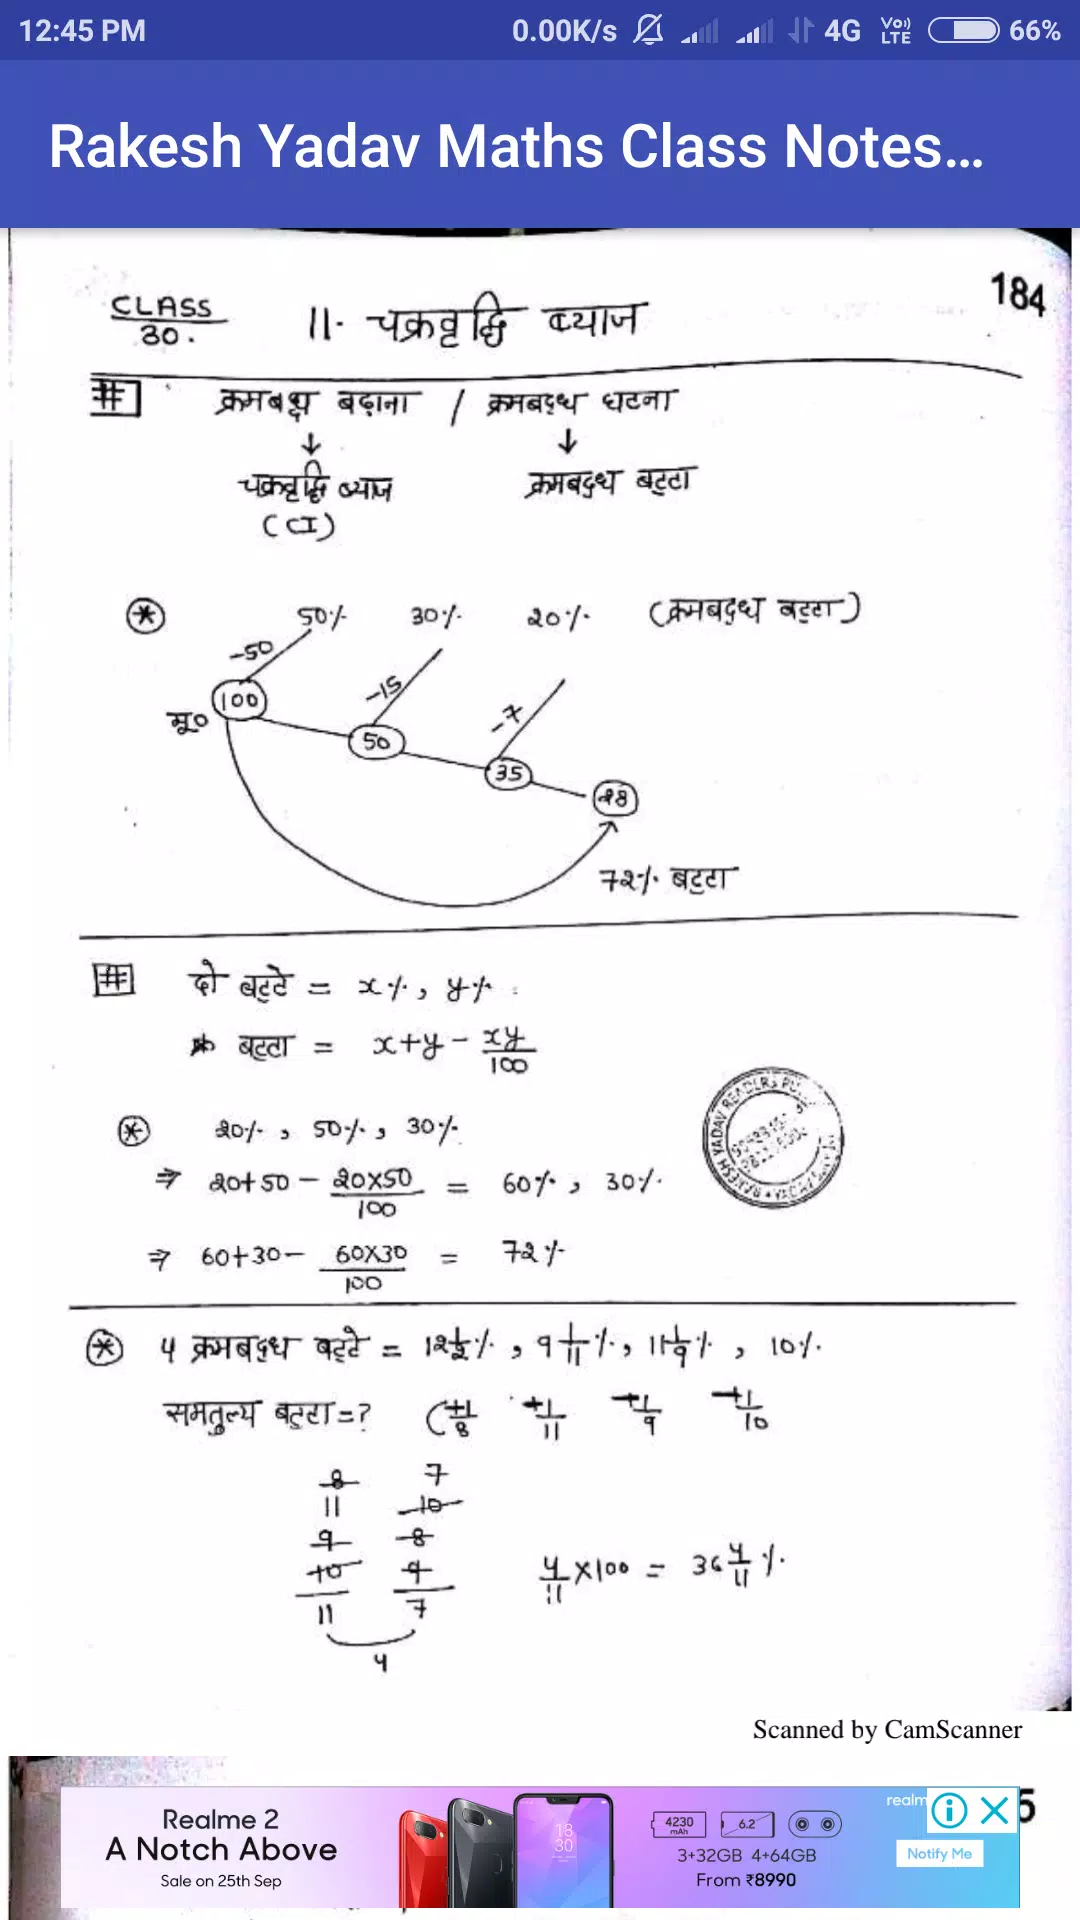 12:45 PM 0.00K/s 4G VoLTE 66%
Rakesh Yadav Maths Class Notes...
184
CLASS 30. 11. चक्रवृद्धि ब्याज
# क्रमबध्ध बढ़ाना / क्रमबद्ध घटना
↓ ↓
चक्रवृद्धि ब्याज क्रमबद्ध बट्टा
(CI)
* 50% 30% 20% (क्रमबद्ध बट्टा)
-50 -15 -7
मू० 100 50 35 28
72% बट्टा
# दो बट्टे = x%, y%
* बट्टा = x+y - xy/100
* 20%, 50%, 30%
⇒ 20+50 - 20×50/100 = 60%, 30%
⇒ 60+30 - 60×30/100 = 72%
* 4 क्रमबद्ध बट्टे = 12 1/2%, 9 1/11%, 11 1/9%, 10%
समतुल्य बट्टा=? (+1/8 +1/11 +1/9 +1/10
8 7
11 10
9 8
10 9 4/11 ×100 = 36 4/11%
11 7
4
Scanned by CamScanner
5
Realme 2
A Notch Above
Sale on 25th Sep
realm
4230 mAh 6.2"
3+32GB 4+64GB
From ₹8990
Notify Me
18
30
RAKESH YADAV READERS PU